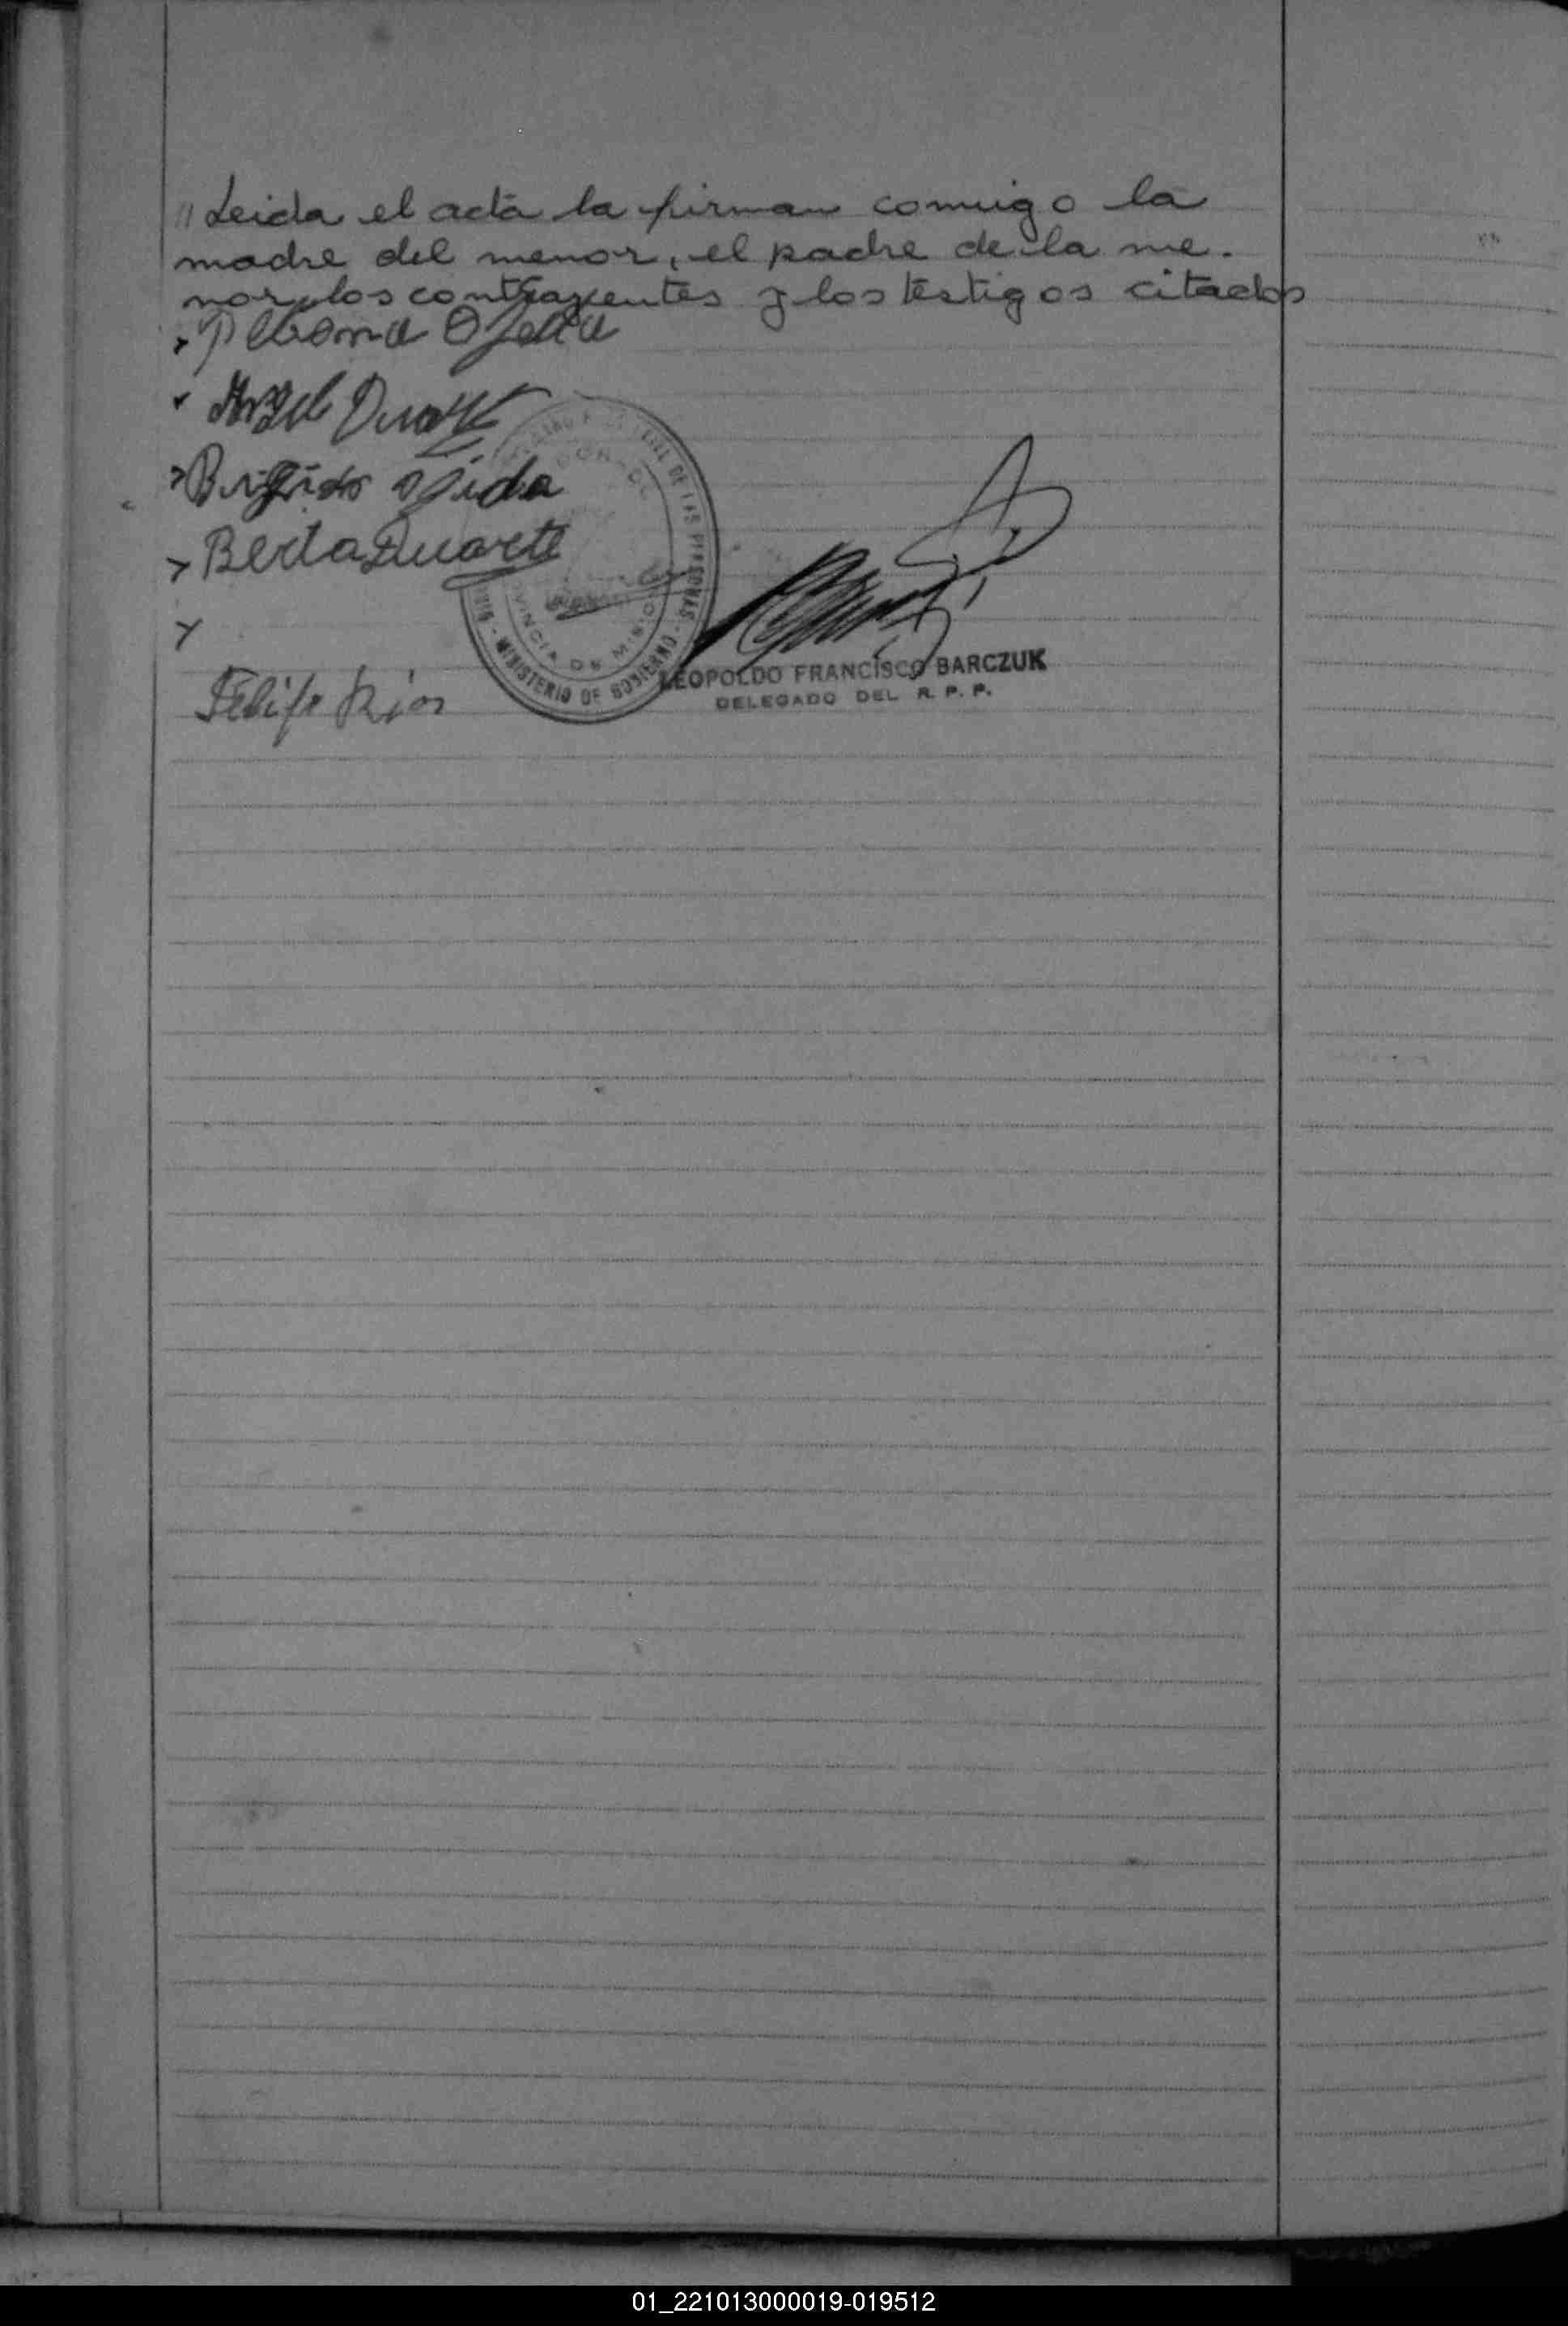 " Leida el acta la firman comigo la
madre del menor, el padre de la me-
nor, los contrayentes y los testigos citados
Ojeda
Duarte
Brigido Ojeda
Berta Duarte
Felipe Rios
DE LAS PERSONAS
PROVINCIA DE MISIONES
MINISTERIO DE GOBIERNO
LEOPOLDO FRANCISCO BARCZUK
DELEGADO DEL R. P. P.
01_221013000019-019512